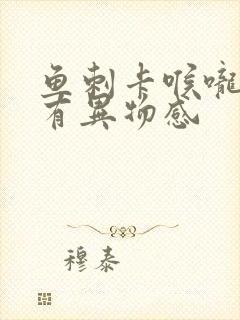 鱼刺卡喉咙
有異物感
穆泰